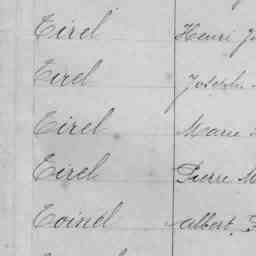 Tirel Henri J
Tirel Joseph
Tirel Marie
Tirel Pierre M
Toinel Albert, F